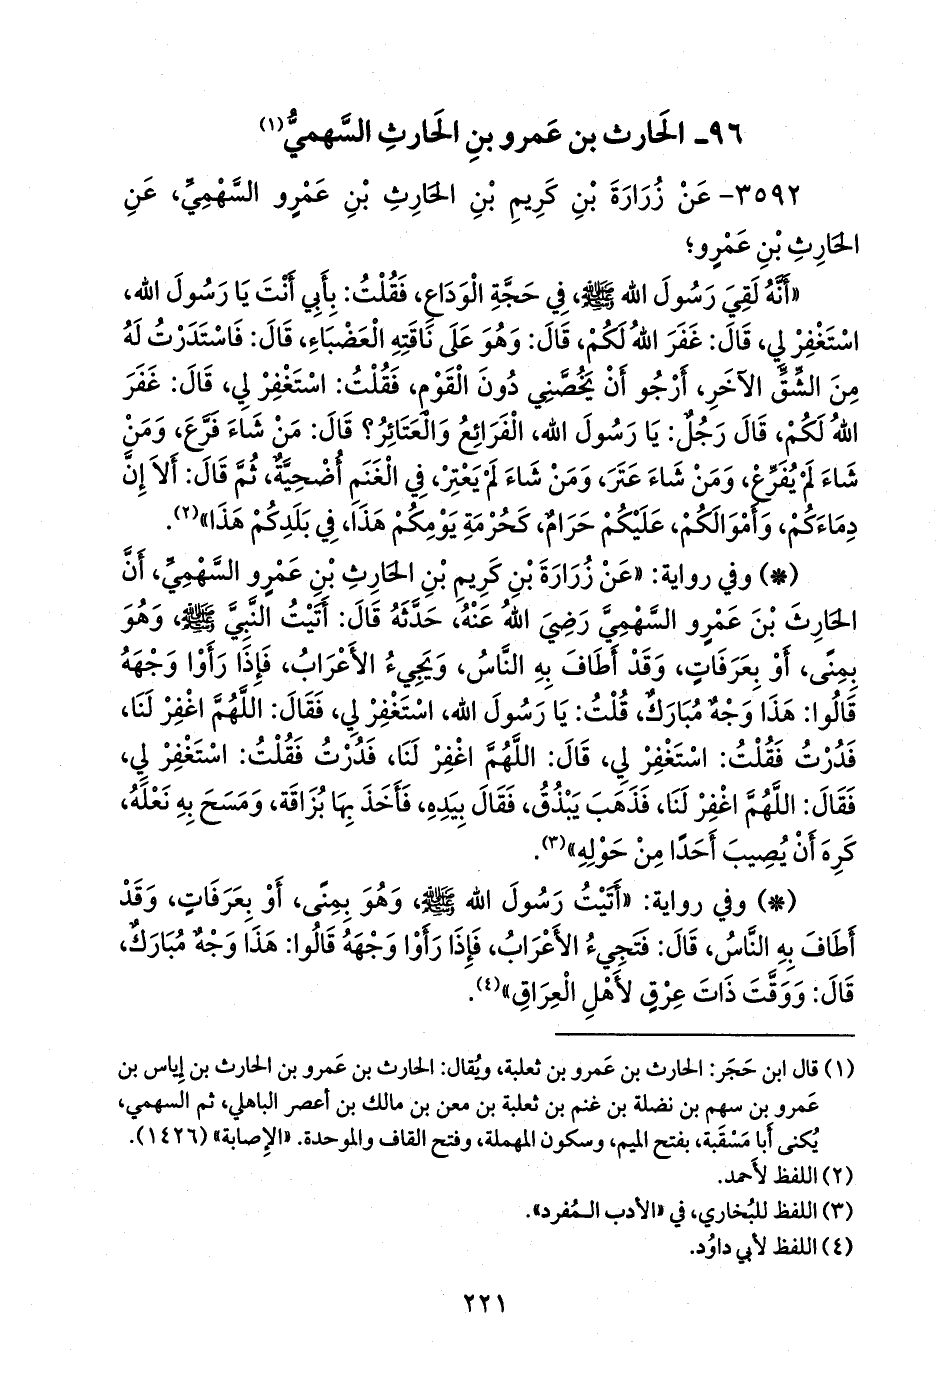 ٩٦- الحَارث بن عَمرو بنِ الحَارثِ السَّهميُّ(١)
٣٥٩٢- عَنْ زُرَارَةَ بْنِ كَرِيمِ بْنِ الحَارِثِ بْنِ عَمْرٍو السَّهْمِيِّ، عَنِ
الحَارِثِ بْنِ عَمْرٍو؛
«أَنَّهُ لَقِيَ رَسُولَ الله ﷺ، فِي حَجَّةِ الْوَدَاعِ، فَقُلْتُ: بِأَبِي أَنْتَ يَا رَسُولَ الله،
اسْتَغْفِرْ لِي، قَالَ: غَفَرَ اللهُ لَكُمْ، قَالَ: وَهُوَ عَلَى نَاقَتِهِ الْعَضْبَاءِ، قَالَ: فَاسْتَدَرْتُ لَهُ
مِنَ الشِّقِّ الآخَرِ، أَرْجُو أَنْ يَخُصَّنِي دُونَ الْقَوْمِ، فَقُلْتُ: اسْتَغْفِرْ لِي، قَالَ: غَفَرَ
اللهُ لَكُمْ، قَالَ رَجُلٌ: يَا رَسُولَ الله، الْفَرَائِعُ وَالْعَتَائِرُ؟ قَالَ: مَنْ شَاءَ فَرَّعَ، وَمَنْ
شَاءَ لَمْ يُفَرِّعْ، وَمَنْ شَاءَ عَتَرَ، وَمَنْ شَاءَ لَمْ يَعْتِرْ، فِي الْغَنَمِ أُضْحِيَّةٌ، ثُمَّ قَالَ: أَلاَ إِنَّ
دِمَاءَكُمْ، وَأَمْوَالَكُمْ، عَلَيْكُمْ حَرَامٌ، كَحُرْمَةِ يَوْمِكُمْ هَذَا، فِي بَلَدِكُمْ هَذَا»(٢).
(*) وفي رواية: «عَنْ زُرَارَةَ بْنِ كَرِيمِ بْنِ الحَارِثِ بْنِ عَمْرٍو السَّهْمِيِّ، أَنَّ
الحَارِثَ بْنَ عَمْرٍو السَّهْمِيَّ رَضِيَ اللهُ عَنْهُ، حَدَّثَهُ قَالَ: أَتَيْتُ النَّبِيَّ ﷺ، وَهُوَ
بِمِنًى، أَوْ بِعَرَفَاتٍ، وَقَدْ أَطَافَ بِهِ النَّاسُ، وَيَجِيءُ الأَعْرَابُ، فَإِذَا رَأَوْا وَجْهَهُ
قَالُوا: هَذَا وَجْهٌ مُبَارَكٌ، قُلْتُ: يَا رَسُولَ الله، اسْتَغْفِرْ لِي، فَقَالَ: اللَّهُمَّ اغْفِرْ لَنَا،
فَدُرْتُ فَقُلْتُ: اسْتَغْفِرْ لِي، قَالَ: اللَّهُمَّ اغْفِرْ لَنَا، فَدُرْتُ فَقُلْتُ: اسْتَغْفِرْ لِي،
فَقَالَ: اللَّهُمَّ اغْفِرْ لَنَا، فَذَهَبَ يَبْذُقُ، فَقَالَ بِيَدِهِ، فَأَخَذَ بِهَا بُزَاقَهُ، وَمَسَحَ بِهِ نَعْلَهُ،
كَرِهَ أَنْ يُصِيبَ أَحَدًا مِنْ حَوْلِهِ»(٣).
(*) وفي رواية: «أَتَيْتُ رَسُولَ الله ﷺ، وَهُوَ بِمِنًى، أَوْ بِعَرَفَاتٍ، وَقَدْ
أَطَافَ بِهِ النَّاسُ، قَالَ: فَتَجِيءُ الأَعْرَابُ، فَإِذَا رَأَوْا وَجْهَهُ قَالُوا: هَذَا وَجْهٌ مُبَارَكٌ،
قَالَ: وَوَقَّتَ ذَاتَ عِرْقٍ لأَهْلِ الْعِرَاقِ»(٤).
(١) قال ابن حَجَر: الحارث بن عَمرو بن ثعلبة، ويُقال: الحارث بن عَمرو بن الحارث بن إِياس بن
عَمرو بن سهم بن نضلة بن غنم بن ثعلبة بن معن بن مالك بن أعصر الباهلي، ثم السهمي،
يُكنى أَبا مَسْقَبة، بفتح الميم، وسكون المهملة، وفتح القاف والموحدة. «الإصابة» (١٤٢٦).
(٢) اللفظ لأَحمد.
(٣) اللفظ للبُخاري، في «الأدب المُفرد».
(٤) اللفظ لأبي داوُد.
٢٢١